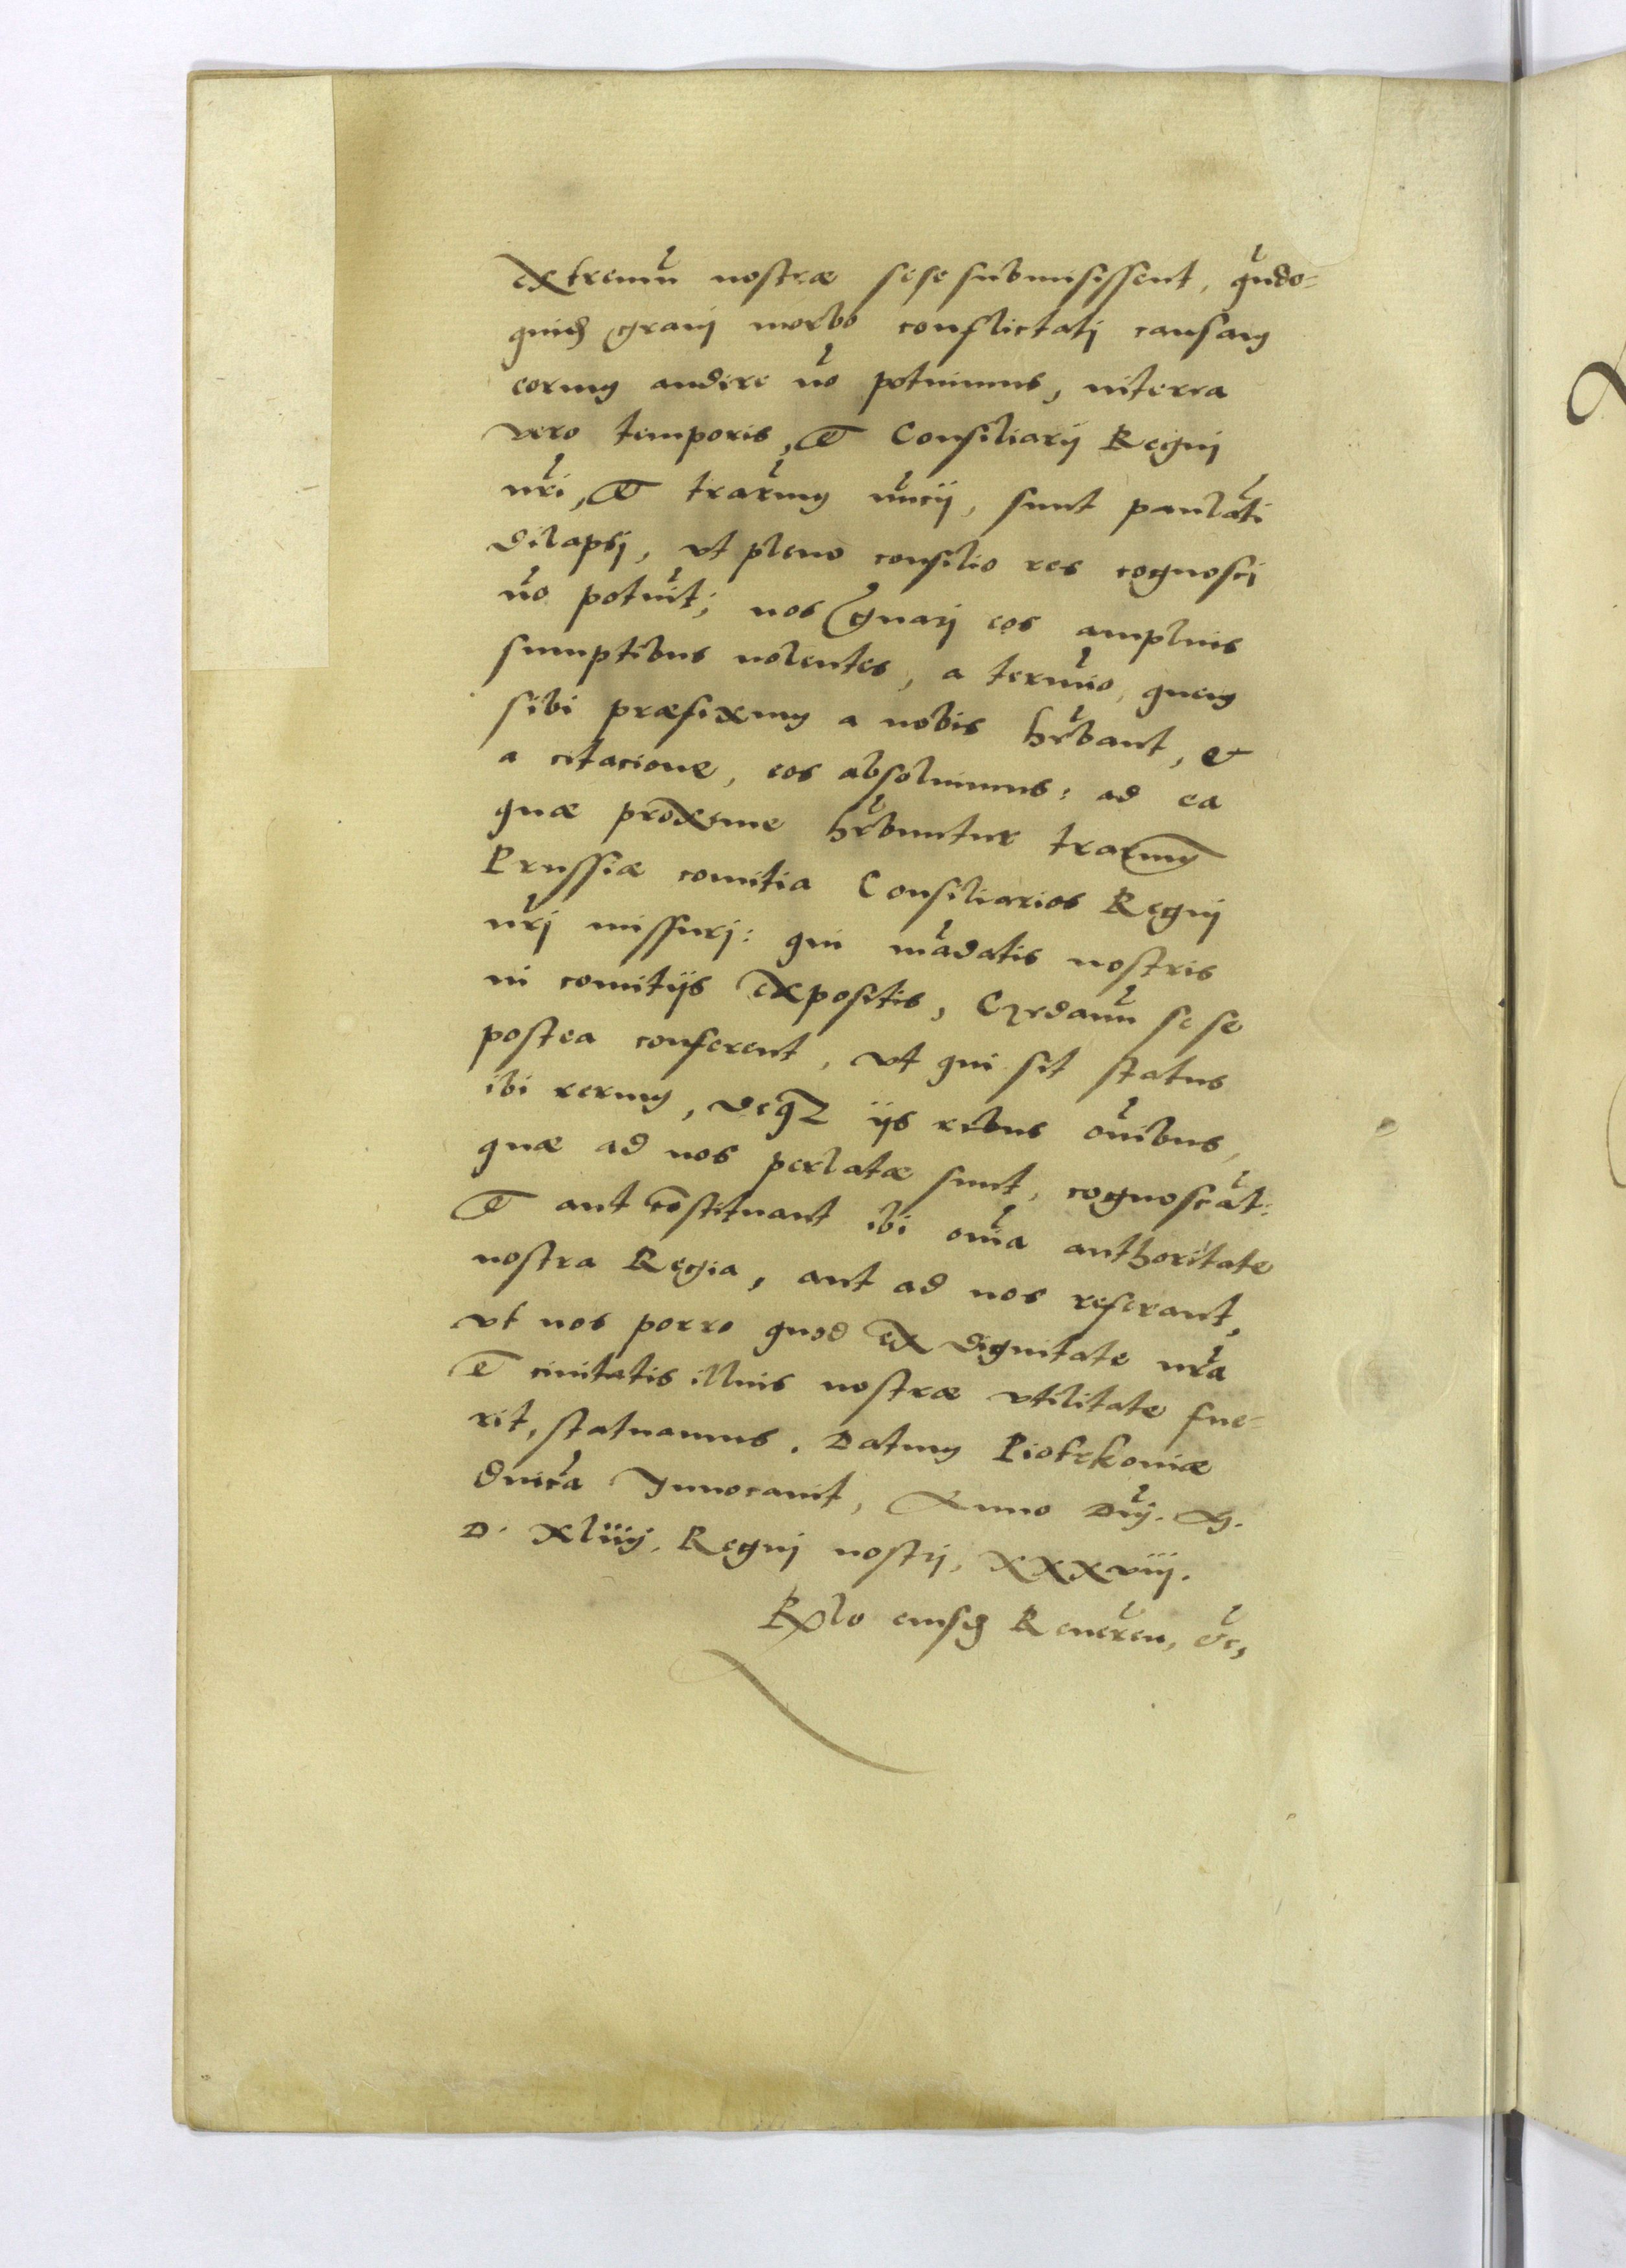 extremũ nostræ sese submisissent, qũdo-
quidẽ graui morbo conflictati causam
eorum audire nõ potuimus, interea
vero temporis, et Consiliarij Regni
nr̃i, et trarũm nũcij, sunt paulati͂
dilapsi, vt pleno consilio res cognosci
nõ potuit; nos grauari eos amplius
sumptibus nolentes, a termi͂o, quem
sibi præfixum a nobis hr̃bant, et
a citacione, eos absoluimus: ad ea
quæ proxime hr̃buntur trarum
Prussiæ comitia Consiliarios Regni
nr̃i missuri: qui mãdatis nostris
in comitijs expositis, Gedanũ sese
postea conferent, vt qui sit status
ibi rerum, deq3 ijs rebus oĩbus,
quæ ad nos perlatæ sunt, cognoscãt:
et aut cõstituant ibi oĩa authoritate
nostra Regia, aut ad nos referant,
vt nos porro quod ex dignitate nr̃a
et ciuitatis illius nostræ vtilitate fue-
rit, statuamus. Datum Piotrkouiæ
dnicã Inuocauit, Anno Dnĩ. M.
D. Xliiij. Regni nostri, XXXviij.
Rplo eiusd Reueren, &c,